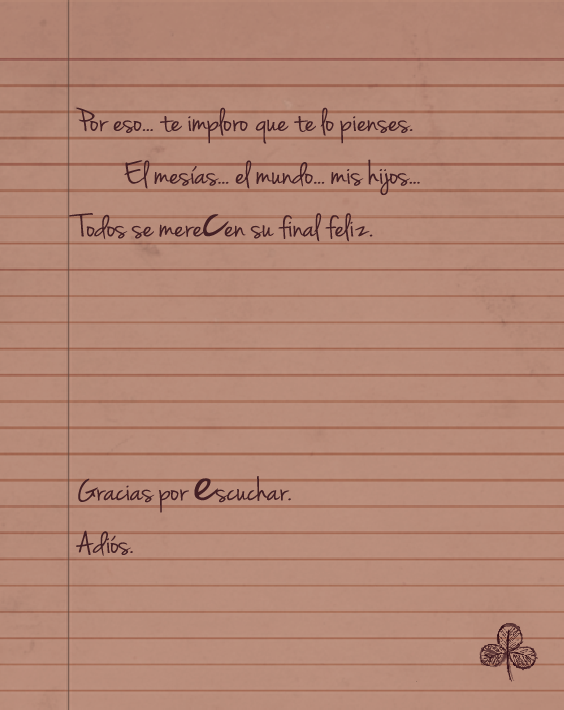 Por eso... te imploro que te lo pienses.
El mesías... el mundo... mis hijos...
Todos se mereCen su final feliz.
Gracias por escuchar.
Adiós.